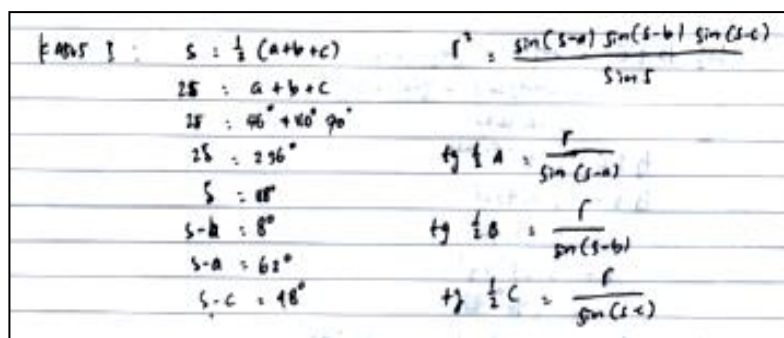 KASUS I : s = ½ (a+b+c)
2s = a+b+c
2s = 56° + 110° 70°
2s = 236°
s = 118°
s-b = 8°
s-a = 62°
s-c = 48°
r² = sin(s-a) sin(s-b) sin(s-c) / sin s
tg ½ A = r / sin(s-a)
tg ½ B = r / sin(s-b)
tg ½ C = r / sin(s-c)